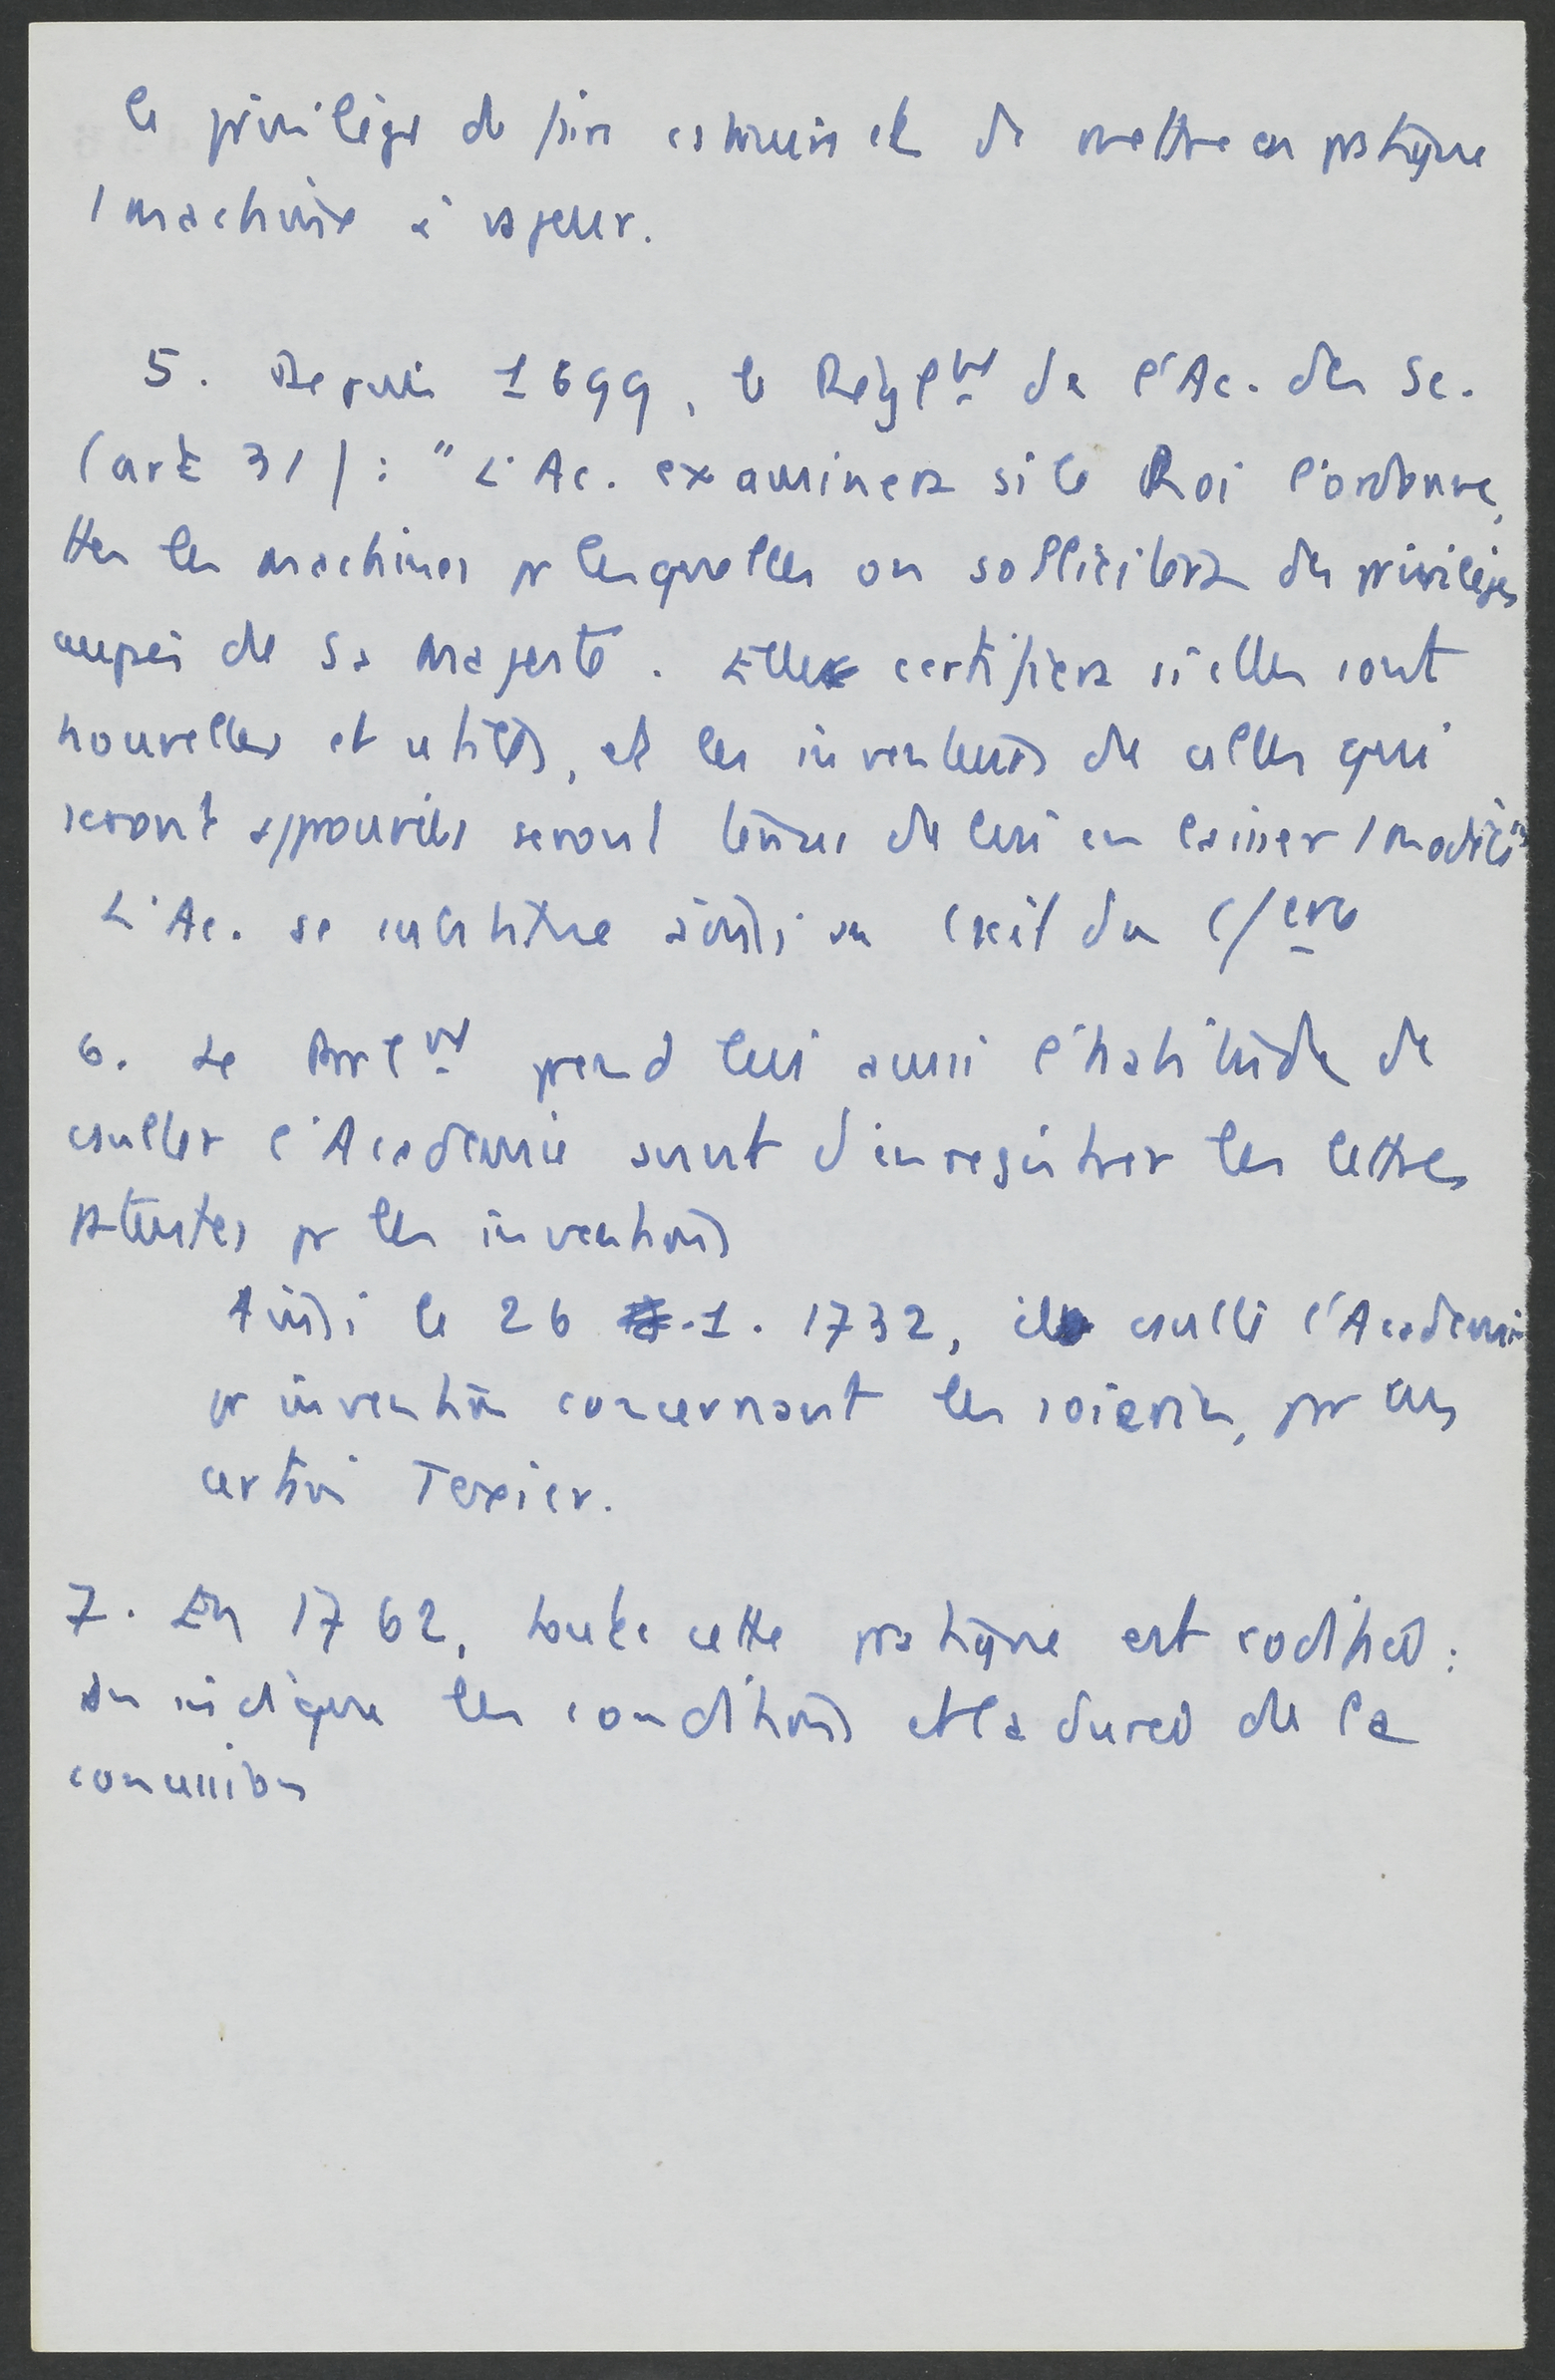 le privilège de faire construire et de mettre en pratique
1 machine à vapeur.
5. Depuis 1699, le Règlt de l'Ac. des Sc.
(art 31) : "L'Ac. examinera si le Roi l'ordonne,
ttes les machines pr lesquelles on sollicitera des privilèges
auprès de Sa Majesté. Elle certifiera si elles sont
nouvelles et utiles, et les inventeurs de celles qui
seront approuvées seront tenus de lui en laisser 1 modèle"
L'Ac. se constitue ainsi en Cseil du
6. Le Parlt prend lui aussi l'habitude de
csulter l'Académie avant d'enregistrer les lettres
patentes pr les inventions
Ainsi le 26 .1. 1732, il csulte l'Académie
pr invention concernant les soieries, par un
certain Texier.
7. En 1762, toute cette pratique est codifiée :
on indique les conditions et la durée de la
concession